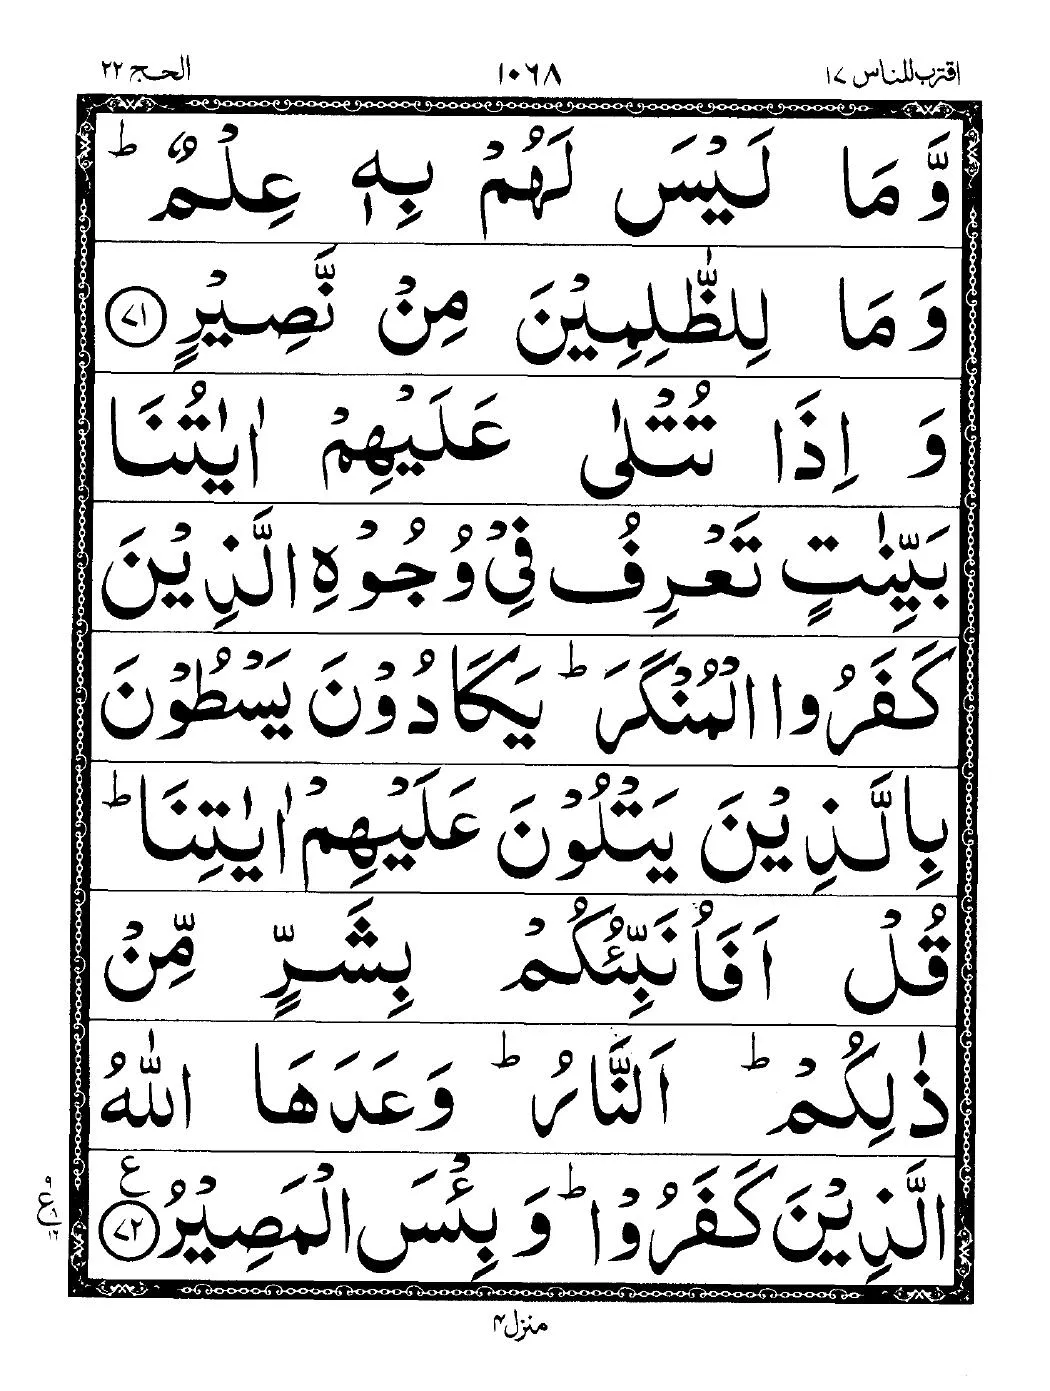 اقترب للناس ١٧ ١٠٦٨ الحج ٢٢
وَّمَا لَيْسَ لَهُمْ بِهٖ عِلْمٌ ؕ
وَمَا لِلظّٰلِمِيْنَ مِنْ نَّصِيْرٍ ﴿۷۱﴾
وَ اِذَا تُتْلٰى عَلَيْهِمْ اٰيٰتُنَا
بَيِّنٰتٍ تَعْرِفُ فِيْ وُجُوْهِ الَّذِيْنَ
كَفَرُوا الْمُنْكَرَ ؕ يَكَادُوْنَ يَسْطُوْنَ
بِالَّذِيْنَ يَتْلُوْنَ عَلَيْهِمْ اٰيٰتِنَا ؕ
قُلْ اَفَاُنَبِّئُكُمْ بِشَرٍّ مِّنْ
ذٰلِكُمْ ؕ اَلنَّارُ ؕ وَعَدَهَا اللّٰهُ
الَّذِيْنَ كَفَرُوْا ؕ وَ بِئْسَ الْمَصِيْرُ ﴿۷۲﴾ ع
منزل ۴